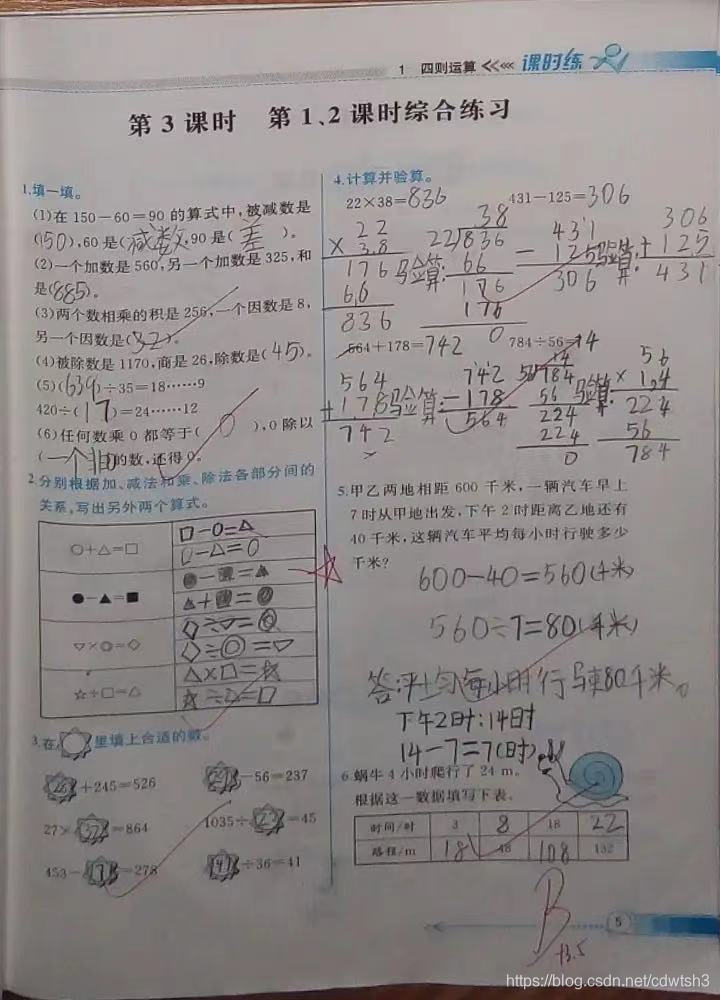 1 四则运算 课时练
第 3 课时 第 1、2 课时综合练习
1.填一填。
(1)在 150-60=90 的算式中,被减数是
(150),60是(减数),90是(差)。
(2)一个加数是 560,另一个加数是 325,和
是(885)。
(3)两个数相乘的积是 256,一个因数是 8,
另一个因数是(32)。
(4)被除数是 1170,商是 26,除数是(45)。
(5)(639)÷35=18……9
420÷(17)=24……12
(6)任何数乘 0 都等于( 0 ),0 除以
(一个非0)的数,还得 0。
2.分别根据加、减法和乘、除法各部分间的
关系,写出另外两个算式。
○+△=□
□-○=△
□-△=○
●-▲=■
●-■=▲
▲+■=●
▽×◎=◇
◇÷▽=◎
◇÷◎=▽
☆÷□=△
△×□=☆
☆÷△=□
3.在 里填上合适的数。
+245=526
-56=237
27× =864
1035÷ =45
453- =278
÷36=41
4.计算并验算。
22×38=836
431-125=306
22
×38
176
66
836
验算:
38
22 836
66
176
176
0
431
-125
306
验算:
306
+125
431
564+178=742
784÷56=14
564
+178
742
验算:
742
-178
564
14
56 784
56
224
224
0
验算:
56
×14
224
56
784
5.甲乙两地相距 600 千米,一辆汽车早上
7时从甲地出发,下午 2 时距离乙地还有
40 千米,这辆汽车平均每小时行驶多少
千米?
600-40=560(千米)
560÷7=80(千米)
答:平均每小时行驶80千米。
下午2时:14时
14-7=7(时)
6.蜗牛 4 小时爬行了 24 m。
根据这一数据填写下表。
时间/时 3 8 18 22
路程/m 18 48 108 132
B
5
https://blog.csdn.net/cdwtsh3